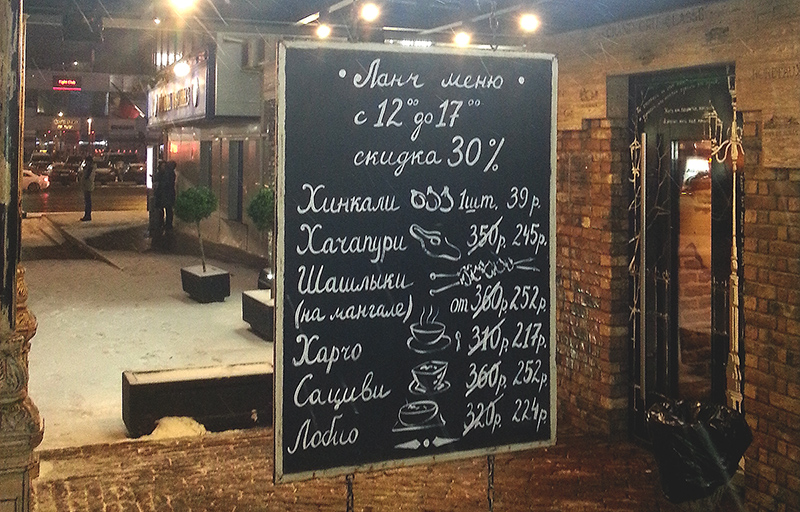 • Ланч меню •
с 12 00 до 17 00
скидка 30%
Хинкали 1шт. 39 р.
Хачапури 350р. 245р.
Шашлыки
(на мангале) от 360р. 252р.
Харчо 310р. 217р.
Сациви 360р. 252р.
Лобио 320р. 224р.
Fight Club